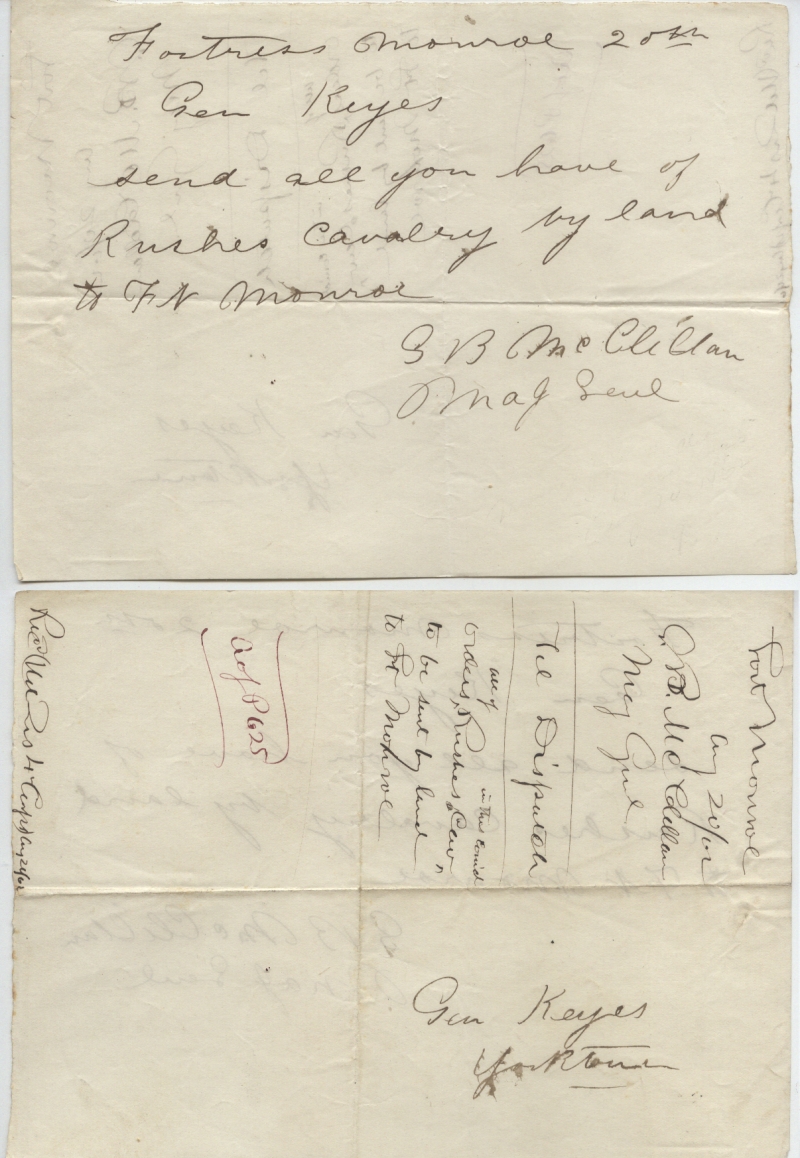 Fortress Monroe 20th
Gen Keyes
send all you have of
Rushes Cavalry by land
to Ft Monroe
G B McClellan
Maj Genl
Fort Monroe
Aug 20/62
G.B. McClellan
Maj Genl
Tel Dispatch
Orders any Rushes Cav"
in this com'd
to be sent by land
to Ft Monroe
P 625
Rec'd Hd Qrs 4 Corps Aug 20/62
Gen Keyes
Yorktown